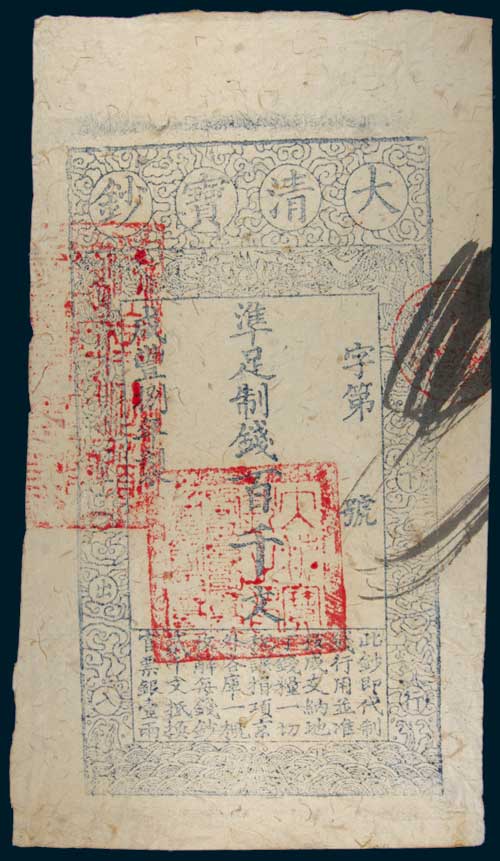 大清寶鈔
字第 號
準足制錢百千文
咸豐捌年製
此鈔即代制
錢行用並准
按成交納地
丁錢糧一切
稅課捐項京
外各庫一概
收解每錢鈔
貳千文抵換
官票銀壹兩
下 行
出入